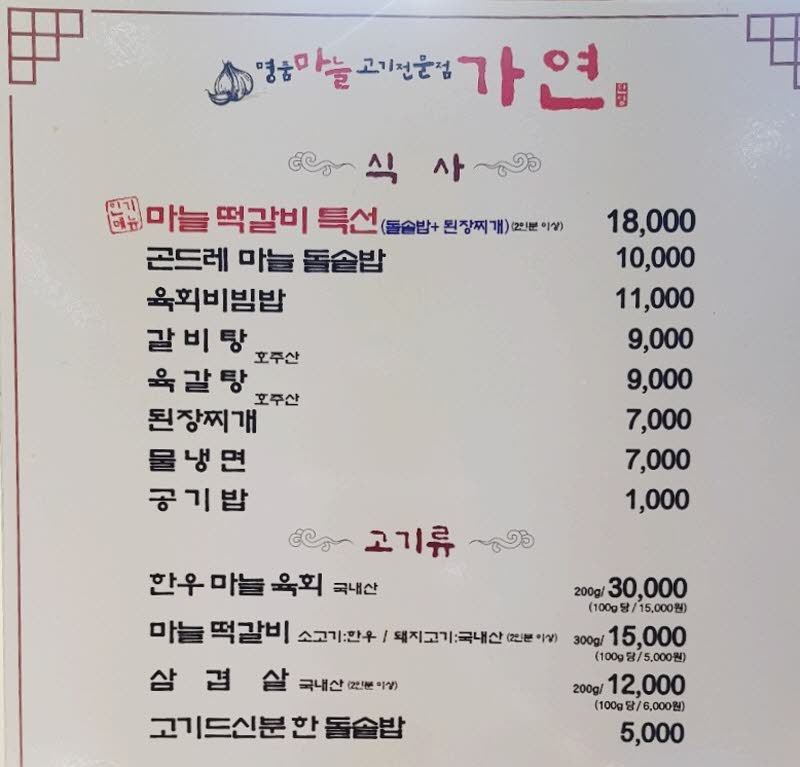 명품 마늘 고기전문점 가연
식 사
인기메뉴 마늘 떡갈비 특선 (돌솥밥+ 된장찌개) (2인분 이상) 18,000
곤드레 마늘 돌솥밥 10,000
육회비빔밥 11,000
갈비탕 호주산 9,000
육갈탕 호주산 9,000
된장찌개 7,000
물냉면 7,000
공기밥 1,000
고기류
한우 마늘 육회 국내산 200g/ 30,000
(100g 당 / 15,000원)
마늘 떡갈비 소고기:한우 / 돼지고기:국내산 (2인분 이상) 300g/ 15,000
(100g 당 / 5,000원)
삼 겹 살 국내산 (2인분 이상) 200g/ 12,000
(100g 당 / 6,000원)
고기드신분 한 돌솥밥 5,000